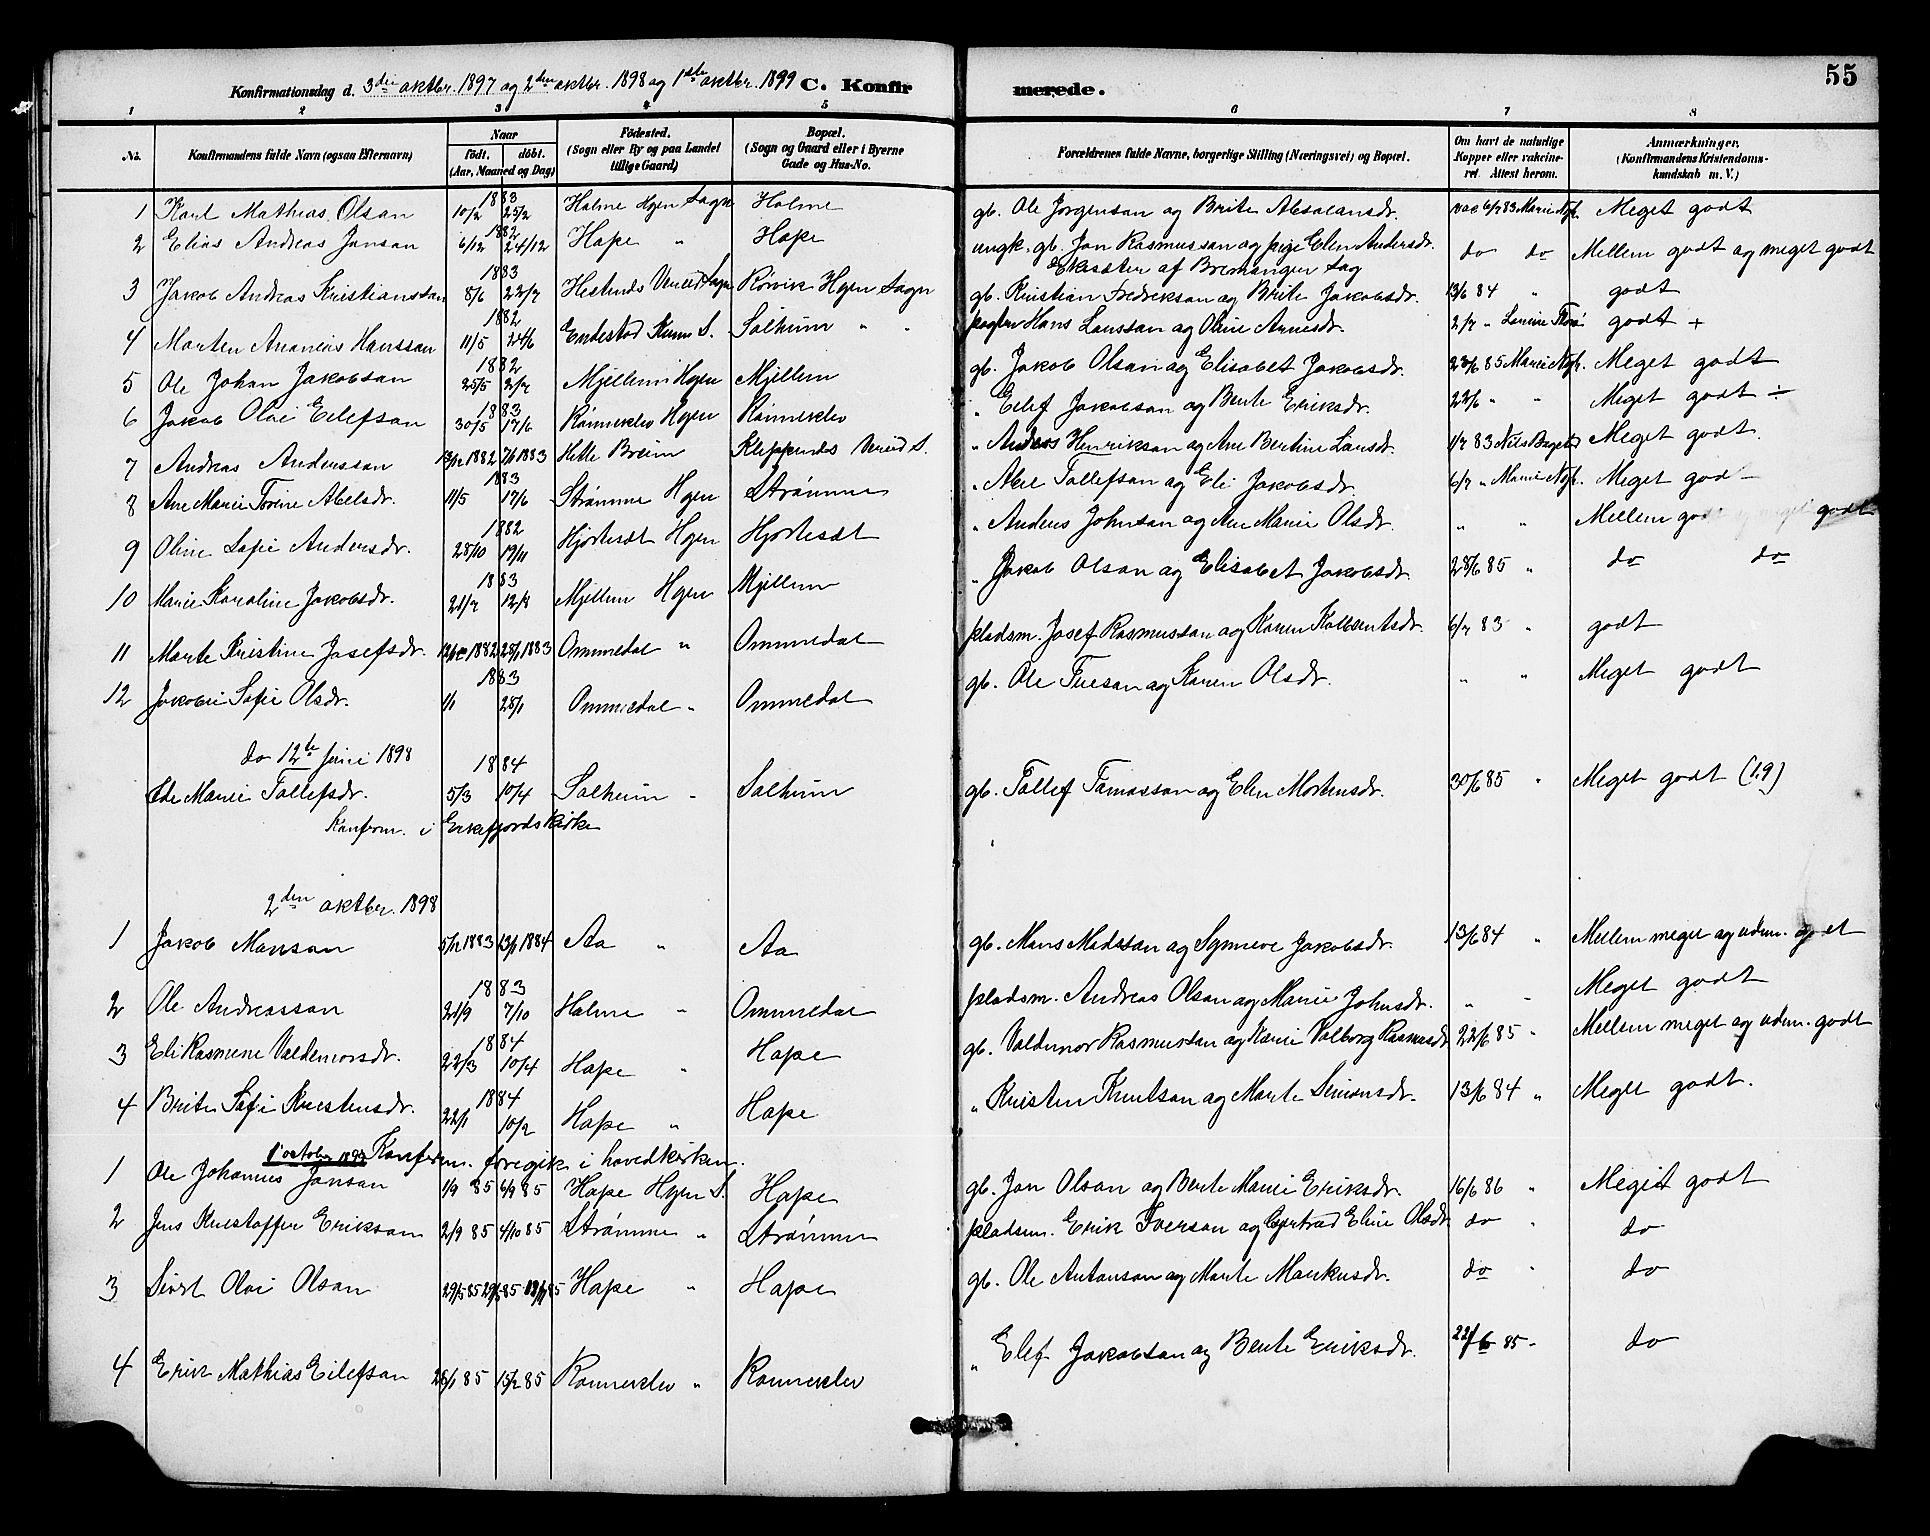 55
Konfirmationsdag d. 3die oktbr. 1897 og 2den oktbr. 1898 og 1ste oktbr. 1899 C. Konfirmerede.
1 2 3 4 5 6 7 8
No. Konfirmandens fulde Navn (ogsaa Efternavn) Naar födt. döbt. (Aar, Maaned og Dag) Födested. (Sogn eller By og paa Landet tillige Gaard) Bopæl. (Sogn og Gaard eller i Byerne Gade og Hus-No. Forældrenes fulde Navne, borgerlige Stilling (Næringsvei) og Bopæl. Om havt de naturlige Kopper eller vaccineret. Attest herom. Anmærkninger. (Konfirmandens Kristendomskundskab m. V.)
1 Karl Mathias Olsan 1883 10/2 25/2 Holme Hyen Sogn Holme gb. Ole Jørgensan og Brite Absalansdr. vac 6/7 83 Marie Nyh. Meget godt
2 Elias Andreas Jansan 1882 6/12 24/12 Hope " Hope ungk. gb. Jon Rasmussan og pige Elen Andersdr. do do Mellem godt og meget godt
Ekesæter af Bremanger Sog
3 Jakob Andreas Kristianssan 1883 8/6 22/7 Hestenes Vereid Sogn Rørvik Hyen Sogn gb. Kristian Fredriksan og Brite Jakobsdr. 13/6 84 " godt
4 Marten Ananias Hanssan 1882 11/5 24/6 Endestad Kinn S. Solheim " " Hans Larssan og Oline Arnesdr. 2/7 " godt +
5 Ole Johan Jakobsan 1882 25/5 2/7 Mjellem Hyen Mjellem gb. Jakob Olsan og Elisabet Jakobsdr. 23/6 85 Marie Nyh. Meget godt
6 Jakob Olai Eilefsan 1883 30/5 17/6 Rønneklev Hyen Rønneklev " Eilef Jakobsan og Bente Eriksdr. 22/6 " " Meget godt ÷
7 Andreas Anderssan 13/12 1882 7/1 1883 Hetle Breim Kleppenes Vereid S. " Anders Henriksan og Ane Bertine Larsdr. 1/7 83 Nils Meget godt.
8 Ane Marie Torine Abelsdr. 1883 11/5 17/6 Strømme Hyen Strømme " Abel Tollefsan og Eli Jakobsdr. 6/7 " Marie Nyh. Meget god
9 Oline Sofie Andersdr. 1882 28/10 19/11 Hjortesæt Hyen Hjortesæt " Anders Johnsan og Ane Marie Olsdr. " " Mellem godt og meget godt
10 Marie Karoline Jakobsdr. 1883 21/7 12/8 Mjellem Hyen Mjellem " Jakob Olsan og Elisabet Jakobsdr. 28/6 85 " do do
11 Marte Kristine Josefsdr. 12/12 1882 28/1 1883 Ommedal " Ommedal pladsm. Josef Rasmussan og Karen Kolbentsdr. 6/7 83 " godt
12 Jakobe Sofie Olsdr. 1883 1/1 28/1 Ommedal " Ommedal gb. Ole Tuesan og Karen Olsdr. " " Meget godt
do 12te juni 1898
Ide Marie Tollefsdr. 1884 5/3 10/4 Solheim " Solheim gb. Tollef Tomassan og Elen Mortensdr. 30/6 85 " Meget godt (1.9)
Konfirm. i Eikefjords kirke
2den oktbr. 1898
1 Jakob Monsan 5/12 1883 13/1 1884 Aa " Aa gb. Mons Madssan og Synneve Jakobsdr. 13/6 84 " Mellem meget og udm. godt
2 Ole Andreassan 1883 21/9 7/10 Holme " Ommedal pladsm. Andreas Olsan og Marie Johnsdr. " " Meget godt
3 Eli Rasmine Valdemarsdr. 1884 22/3 10/4 Hope " Hope gb. Valdemar Rasmussan og Karie Valborg Rasmusdr 22/6 85 " Mellem meget og udm. godt
4 Brite Sofie Kristensdr. 1884 22/1 10/2 Hope " Hope " Kristen Knutsan og Marte Simonsdr. 13/6 84 " Meget godt.
1 october 1899 Konfirm. foregik i hovedkirken.
1 Ole Johannes Jonsan 1/9 85 6/9 85 Hope Hyen S. Hope gb. Jon Olsan og Bente Marie Eriksdr. 16/6 86 " Meget godt
2 Jens Kristoffer Eriksan 2/9 85 4/10 85 Strømme " Strømme pladsm. Erik Iversan og Gjertrud Eline Olsdr do " do
3 Sivert Olai Olsan 29/5 85 Hope " Hope gb. Ole Antonsan og Marte Markusdr. do " do
4 Erik Mathias Eilefsan 28/1 85 15/2 85 Rønneklev " Rønneklev " Elef Jakobsan og Bente Eriksdr. 22/6 85 " do